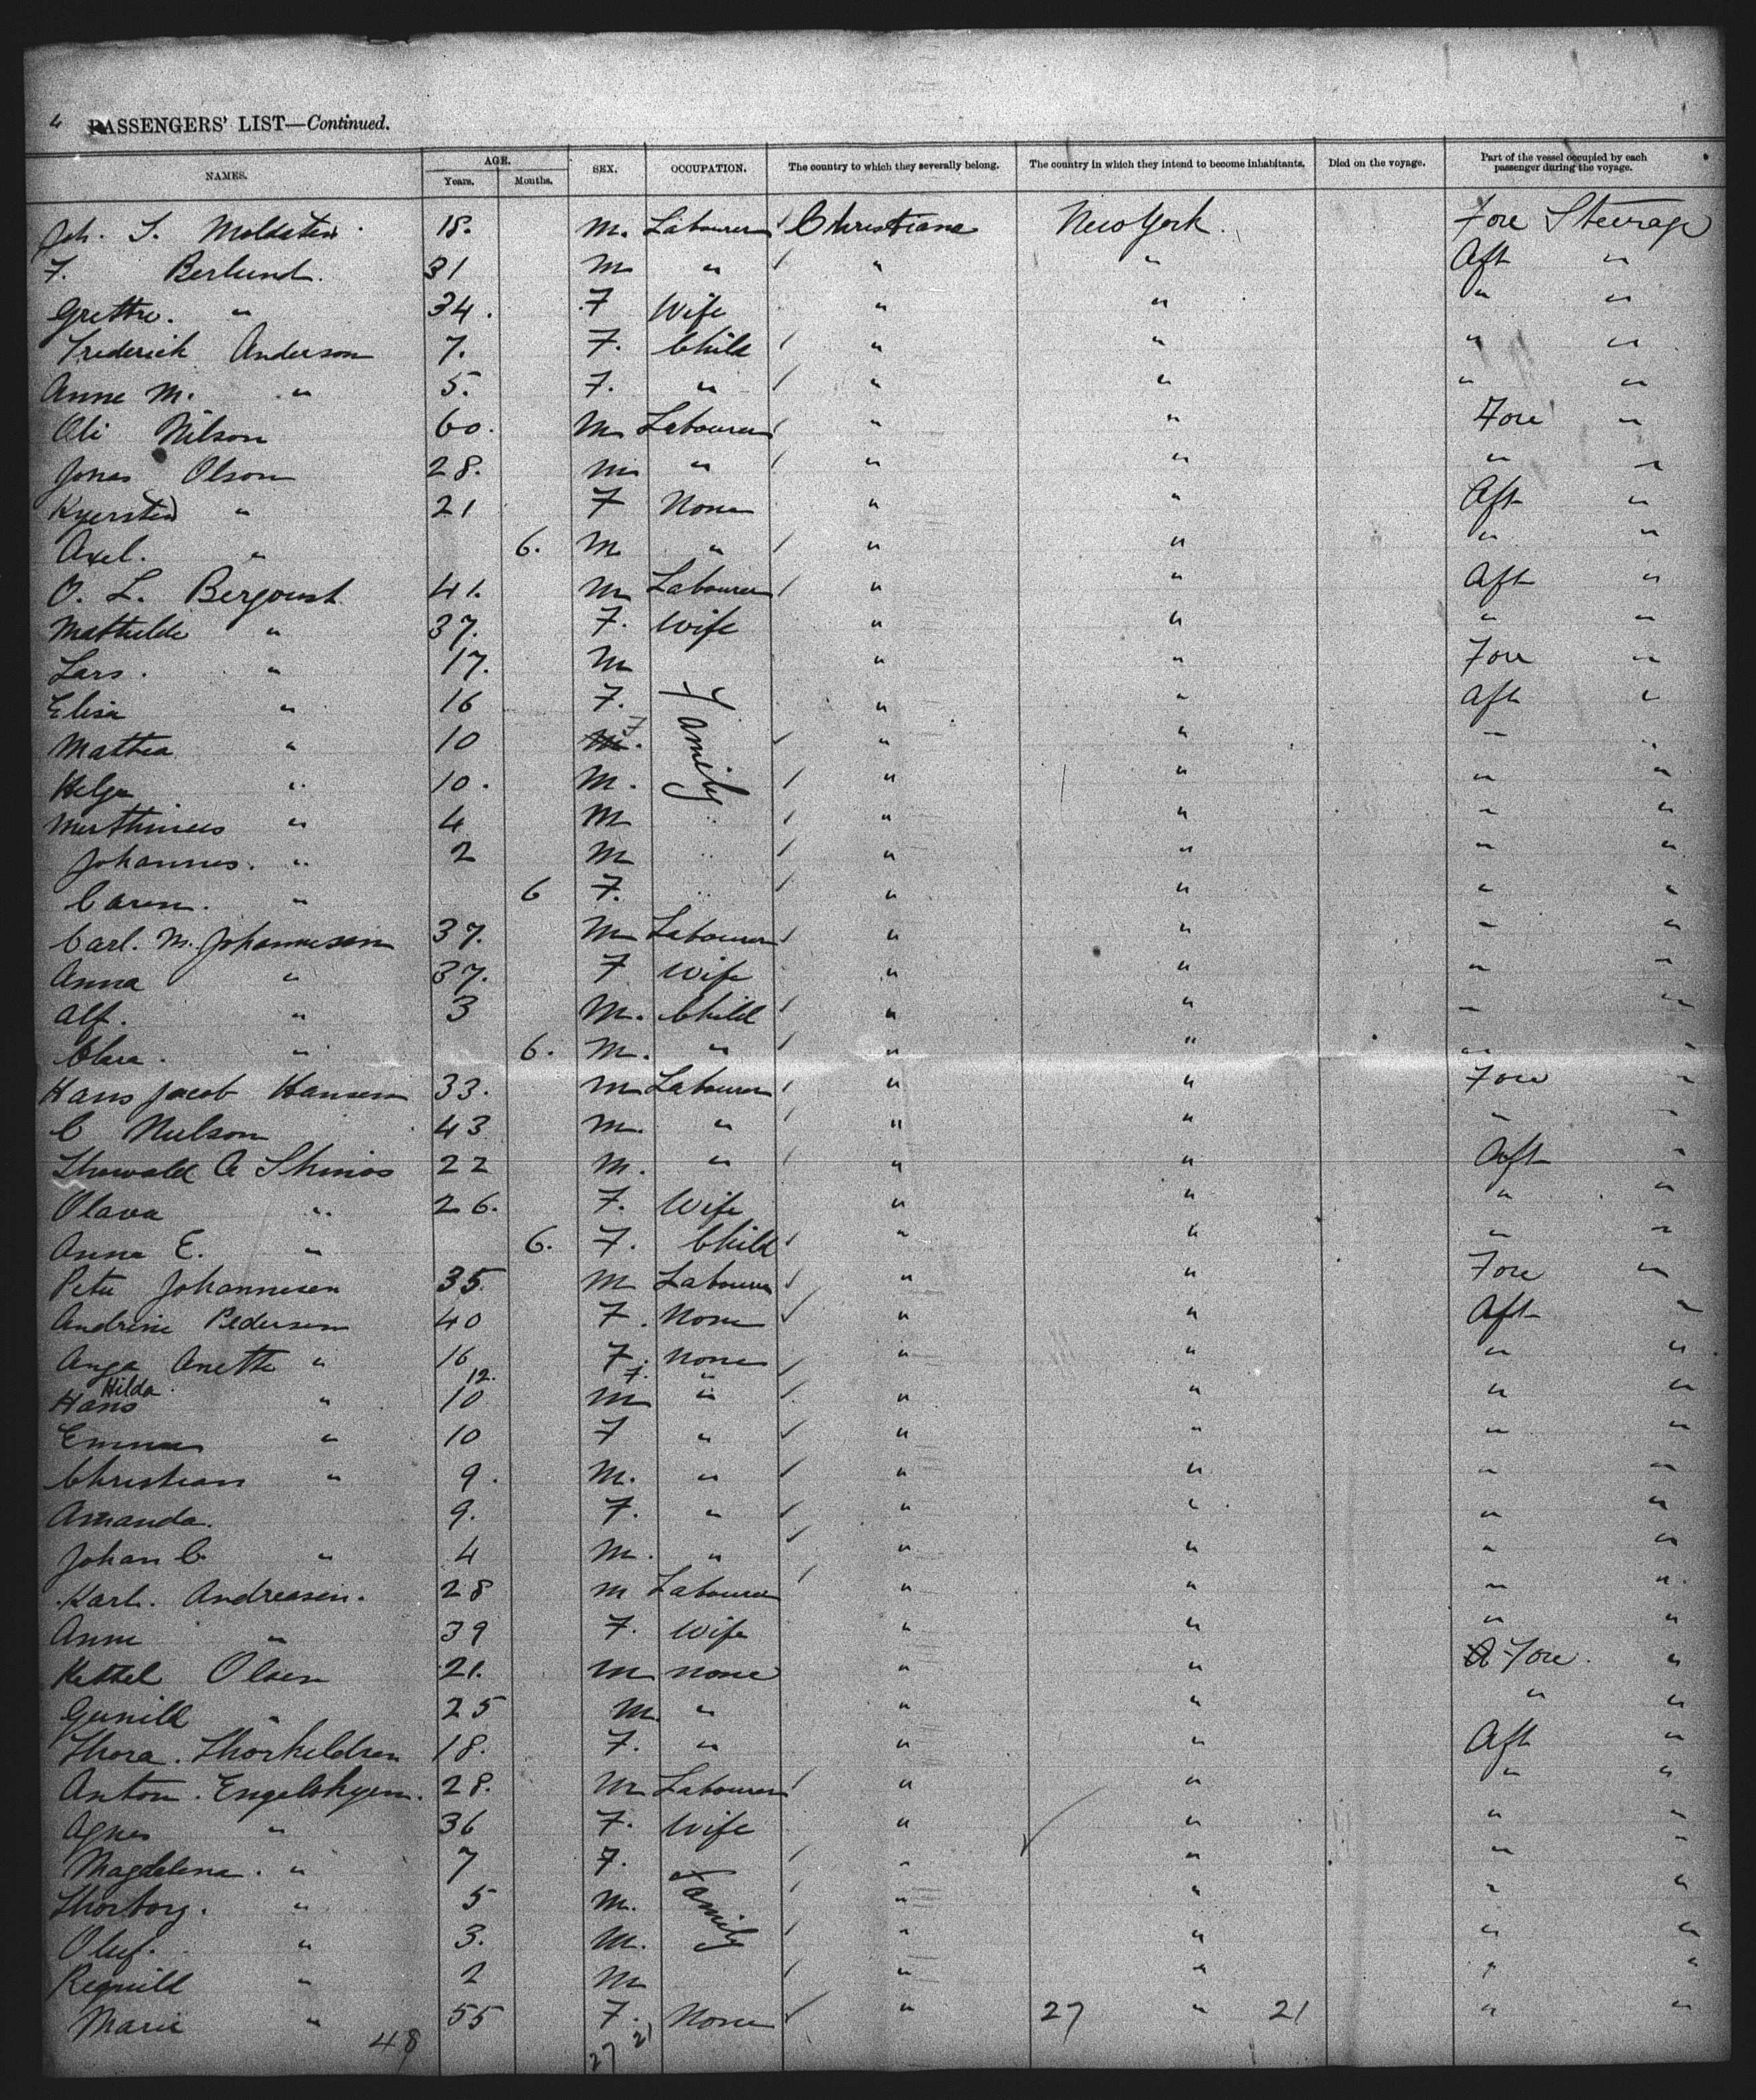 4 PASSENGERS' LIST—Continued.
NAMES. AGE. Years. Months. SEX. OCCUPATION. The country to which they severally belong. The country in which they intend to become inhabitants. Died on the voyage. Part of the vessel occupied by each passenger during the voyage.
Joh. 18. M. Labourer Christiana New York. Fore Steerage
F. Berlund. 31 M " " " Aft "
Grethe. " 34. F Wife " " " "
Frederick Anderson 7. F. Child " " " "
Anne M. " 5. F. " " " " "
Ole Nilson 60. M Labourer " " Fore "
Jonas Olson 28. M " " " " "
" 21 F None " " Aft "
Axel. " 6. M " " " " "
O. L. 41. M Labourer " " Aft "
Mathilde " 37. F. Wife " " " "
Lars. " 17. M " " Fore "
Elisa " 16 F. Family " " Aft "
Mathea " 10 F " " " "
Helga " 10. M. " " " "
" 4 M " " " "
Johannes. " 2 M " " " "
Caren. " 6 F. " " " "
Carl. M. Johannesen 37. M Labourer " " " "
Anna " 37. F Wife " " " "
Alf. " 3 M. Child " " " "
Clara. " 6. M. " " " " "
Hans Jacob Hansen 33. M Labourer " " Fore "
C Nielson 43 M. " " " " "
22 M. " " " Aft "
Olava " 26. F. Wife " " " "
Anna E. " 6. F. Child " " " "
Peter Johannesen 35. M Labourer " " Fore "
Andrine Pedersen 40 F. None " " Aft "
Anga Anette " 16 F. None " " " "
Hilda. 12. F. "
Hans " 10 M " " " " "
Emma " 10 F " " " " "
Christian " 9. M. " " " " "
Amanda. 9. F. " " " " "
Johan C. " 4 M. " " " " "
Karl. Andreasen. 28 M Labourer " " " "
Anne " 39 F. Wife " " " "
Kettel Olsen 21. M None " " Fore. "
Gunild " 25 M. " " " " "
Thora. Thorkeldsen 18. F. " " " Aft "
Anton. 28. M Labourer " " " "
Agnes " 36 F. Wife " " " "
Magdalena. " 7 F. Family " " " "
Thorborg. " 5 M. " " " "
Oluf. " 3. M. " " " "
Regnild " 2 M " " " "
Marie " 55 F. None " 27 " 21 " "
48 27 21